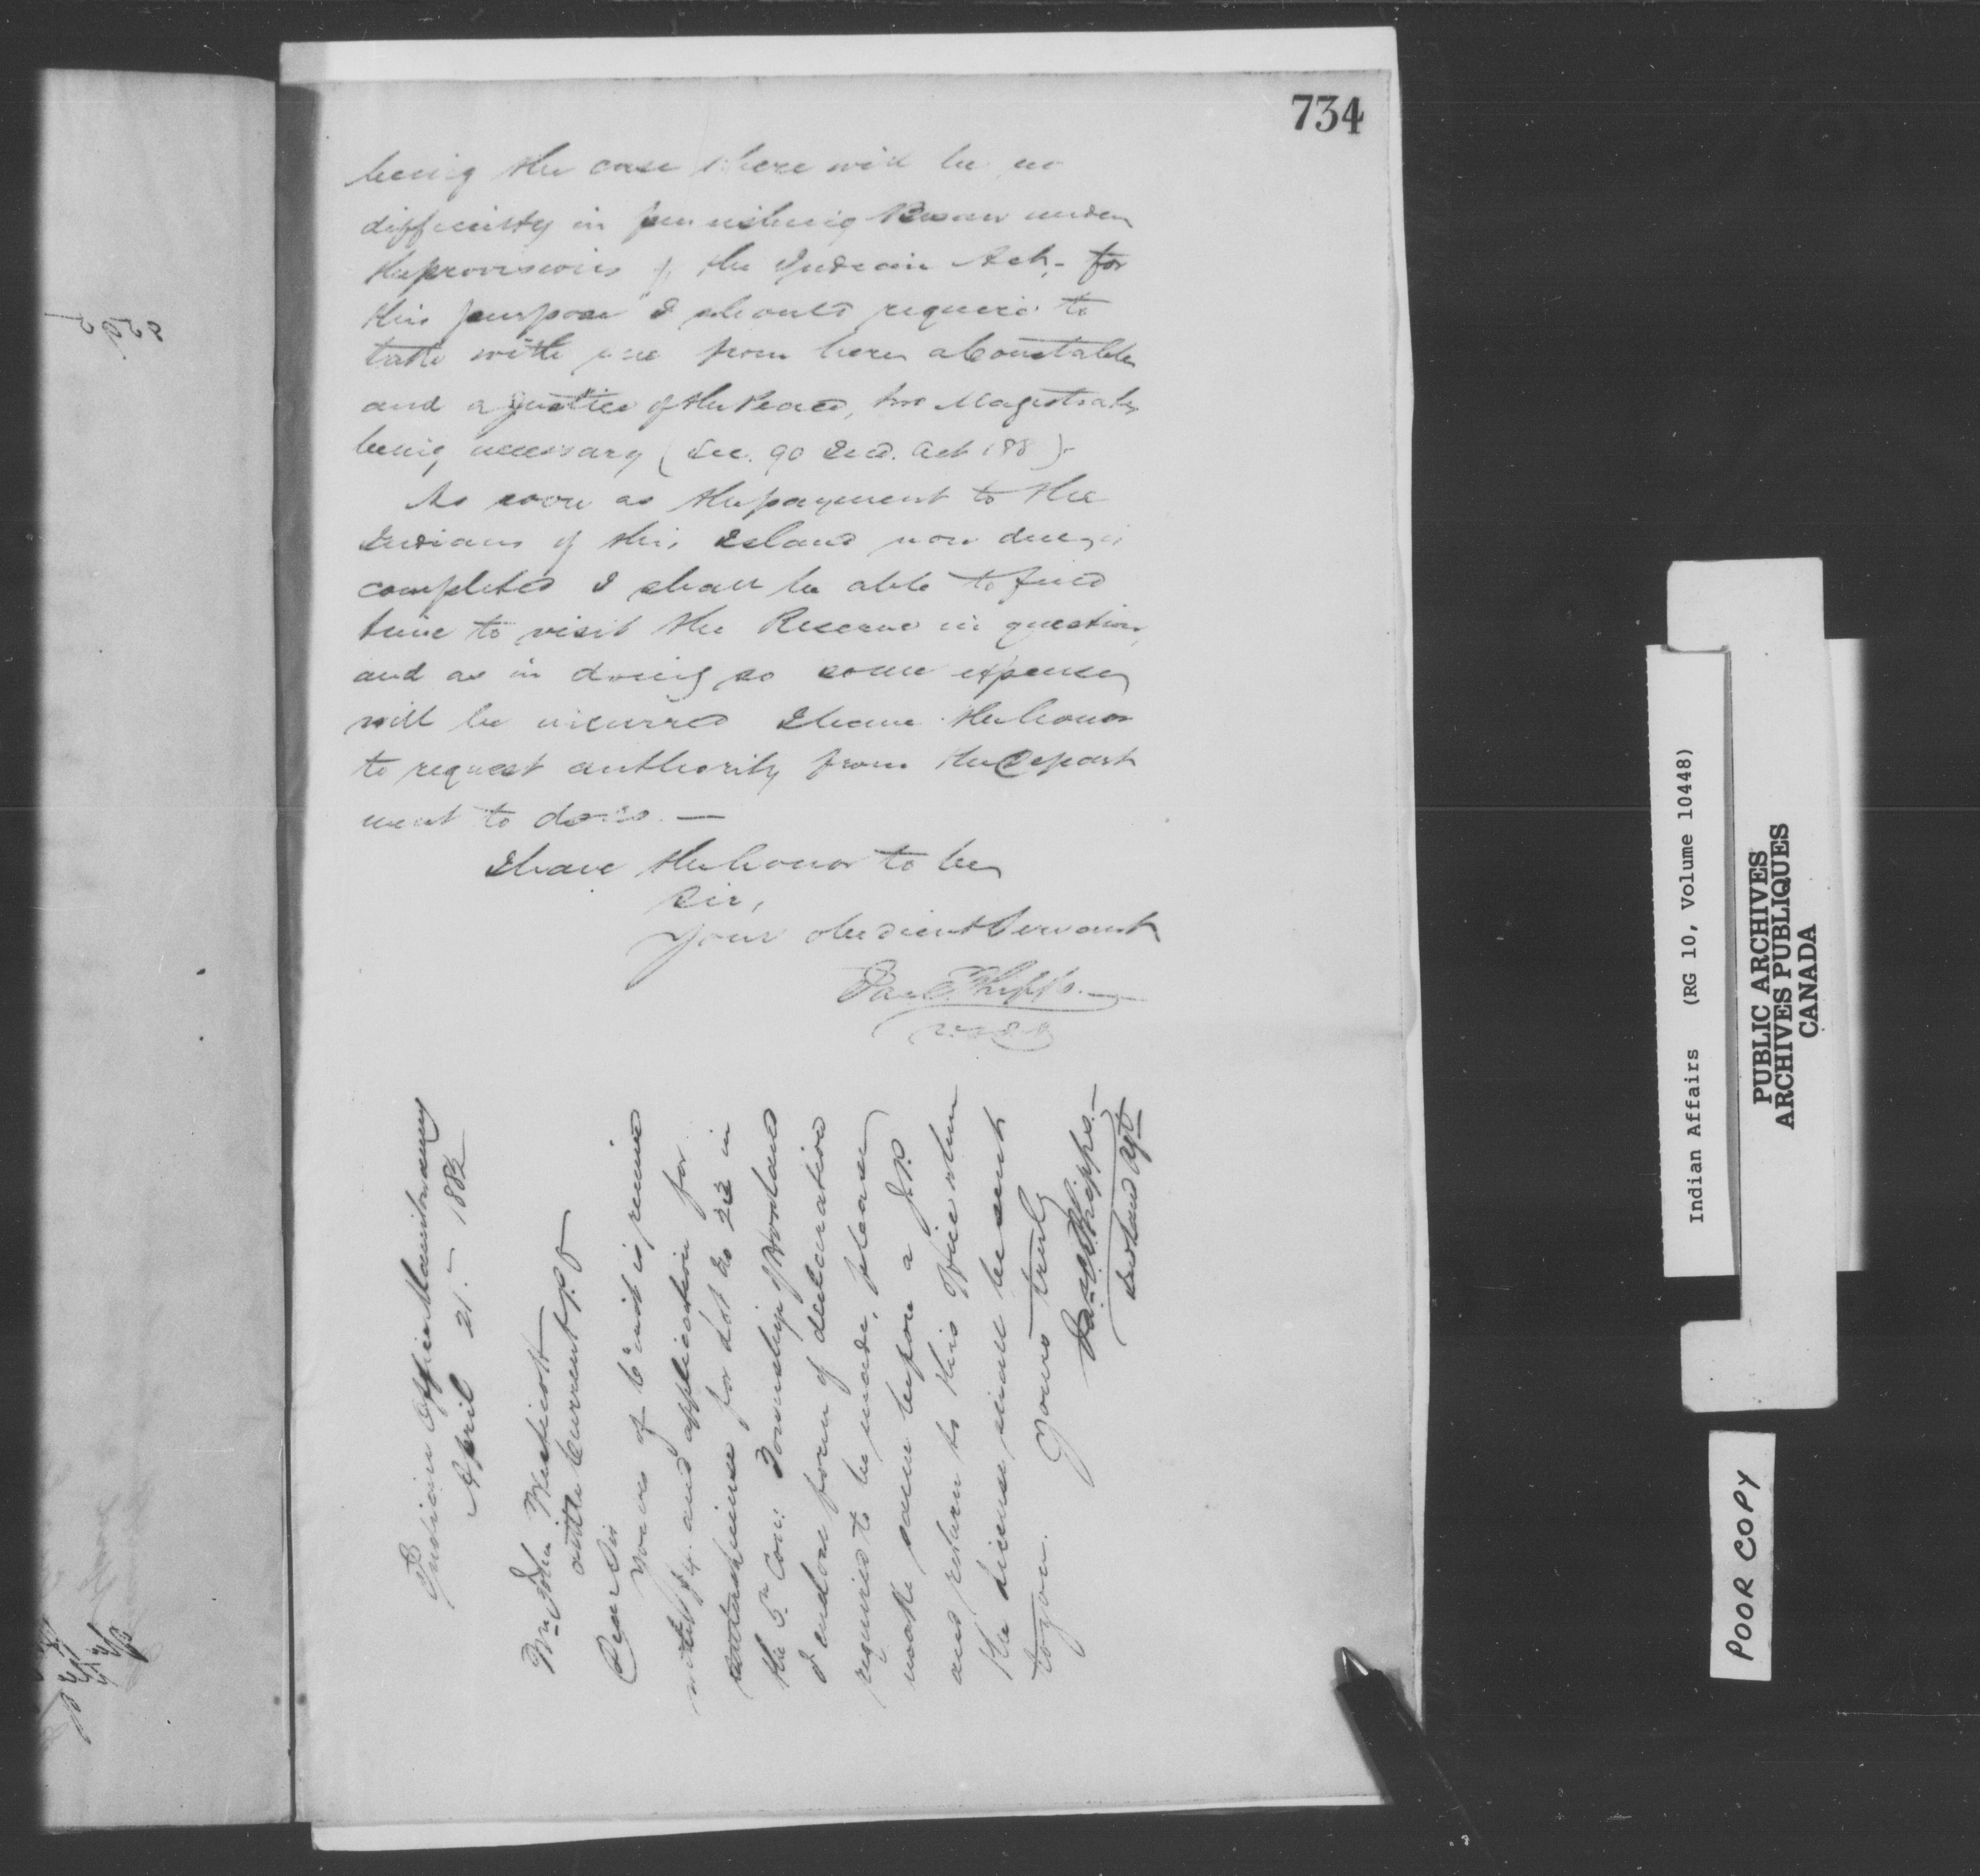 734
being the case there will be no
difficulty in punishing under
the provisions of the Indian Act, - for
this purpose I should require to
take with me from here a Constable
and a Justice of the Peace, two Magistrates
being necessary (Sec. 90 Ind. Act 188 ) -
As soon as the payment to the
Indians of this Island now due is
completed I shall be able to find
time to visit the Reserve in question,
and as in doing so some expense
will be incurred I have the honor
to request authority from the Depart
ment to do so. —
I have the honor to be
Sir,
Your obedient Servant
Jas C. Phipps. —
Indian Office Manitowaning
April 21. - 1882
Mr John
Little Current P.O
Dear Sir
Yours of 6th inst is received
with $4. and application for
for Lot No 23 in
the 5th Con: Township of Howland
I enclose form of declaration
required to be made, please
make same before a J.P.
and return to this Office when
the License will be sent
to you. Yours truly
Jas C Phipps. —
Ind Land Agt
Indian Affairs (RG 10, Volume 10448)
PUBLIC ARCHIVES
ARCHIVES PUBLIQUES
CANADA
POOR COPY